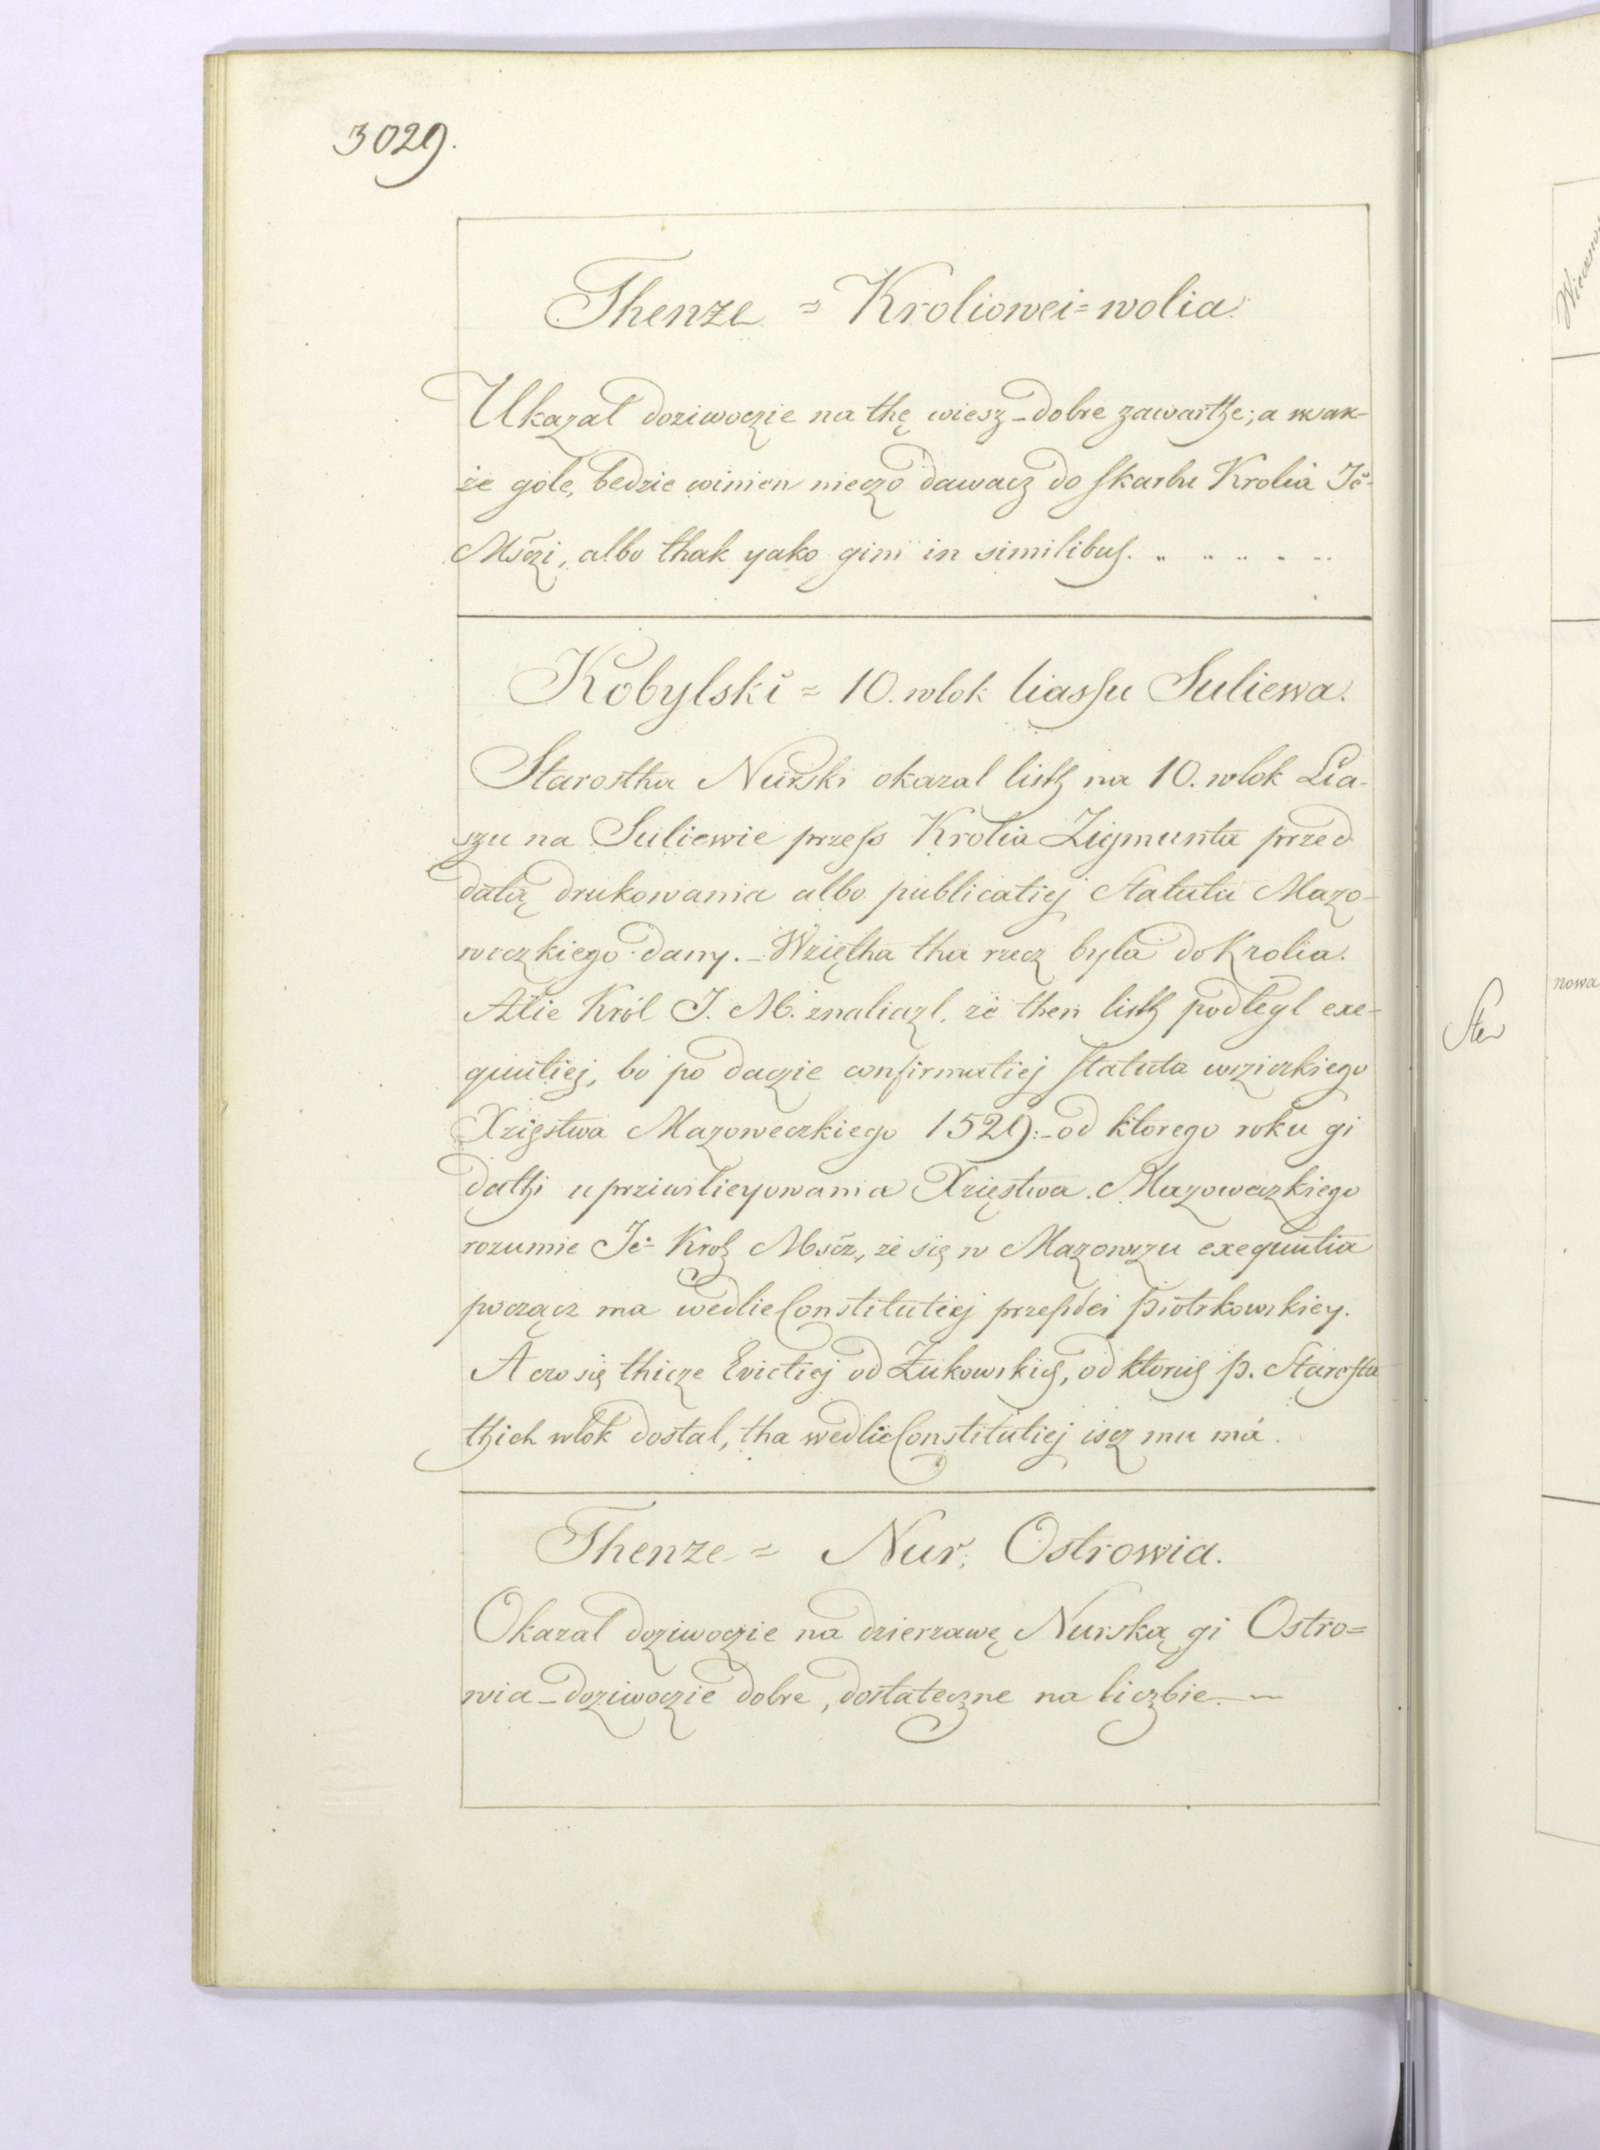 3029.
Thenze = Kroliowei=wolia.
Ukazal doziwoczie na thę wiesz_dobre zawarthe; a wsak-
że gole, bedzie winien nieczo dawacz do skarbu Krolia Je-
Mśczi, albo thak yako gini in similibus.
Kobylski = 10. wlok liassu Suliewa.
Starostha Nurski okazal listh na 10. wlok Lia-
szu na Suliewie przess Krolia Zigmunta przed
datą drukowania albo publicatiej Statutu Mazo-
weczkiego dany._Wziętha tha rzecz byla do Krolia.
Alie Król J. M. znaliazl, że then listh podlegl exe-
quutiej, bo po daczie confirmatiej statuta wziczkiego
Xzięstwa Mazoweczkiego 1529:_od ktorego roku gi
dathi uprziwilieyowania Xzięstwa Mazoweczkiego
rozumie Je Krol Mscz, że się w Mazowszu exequutia
począcz ma wedlie Constitutiej przeszlei piotrkowskiey.
A czo się thicze Evictiej od Żukowskich, od ktorich p. Starosta
thich wlok dostal, tha wedlie Constitutiej iscz mu má.
Thenze = Nur, Ostrowia.
Okazal dozivoczie na dzierzawę Nurską gi Ostro=
wia_doziwoczie dobre, dostateczne na liczbie.
nowa